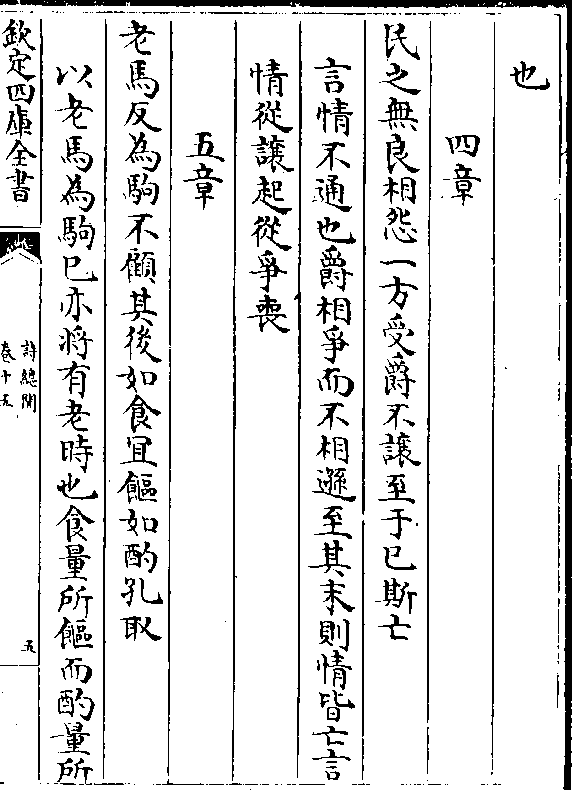 也
四章
民之無良相怨一方受爵不讓至于已斯亡
言情不通也爵相爭而不相遜至其末則情皆亡言
情從讓起從爭喪
五章
老馬反為駒不顧其後如食宜饇如酌孔取
以老馬為駒已亦將有老時也食量所饇而酌量所
欽定四庫全書
詩總聞
卷十五
五